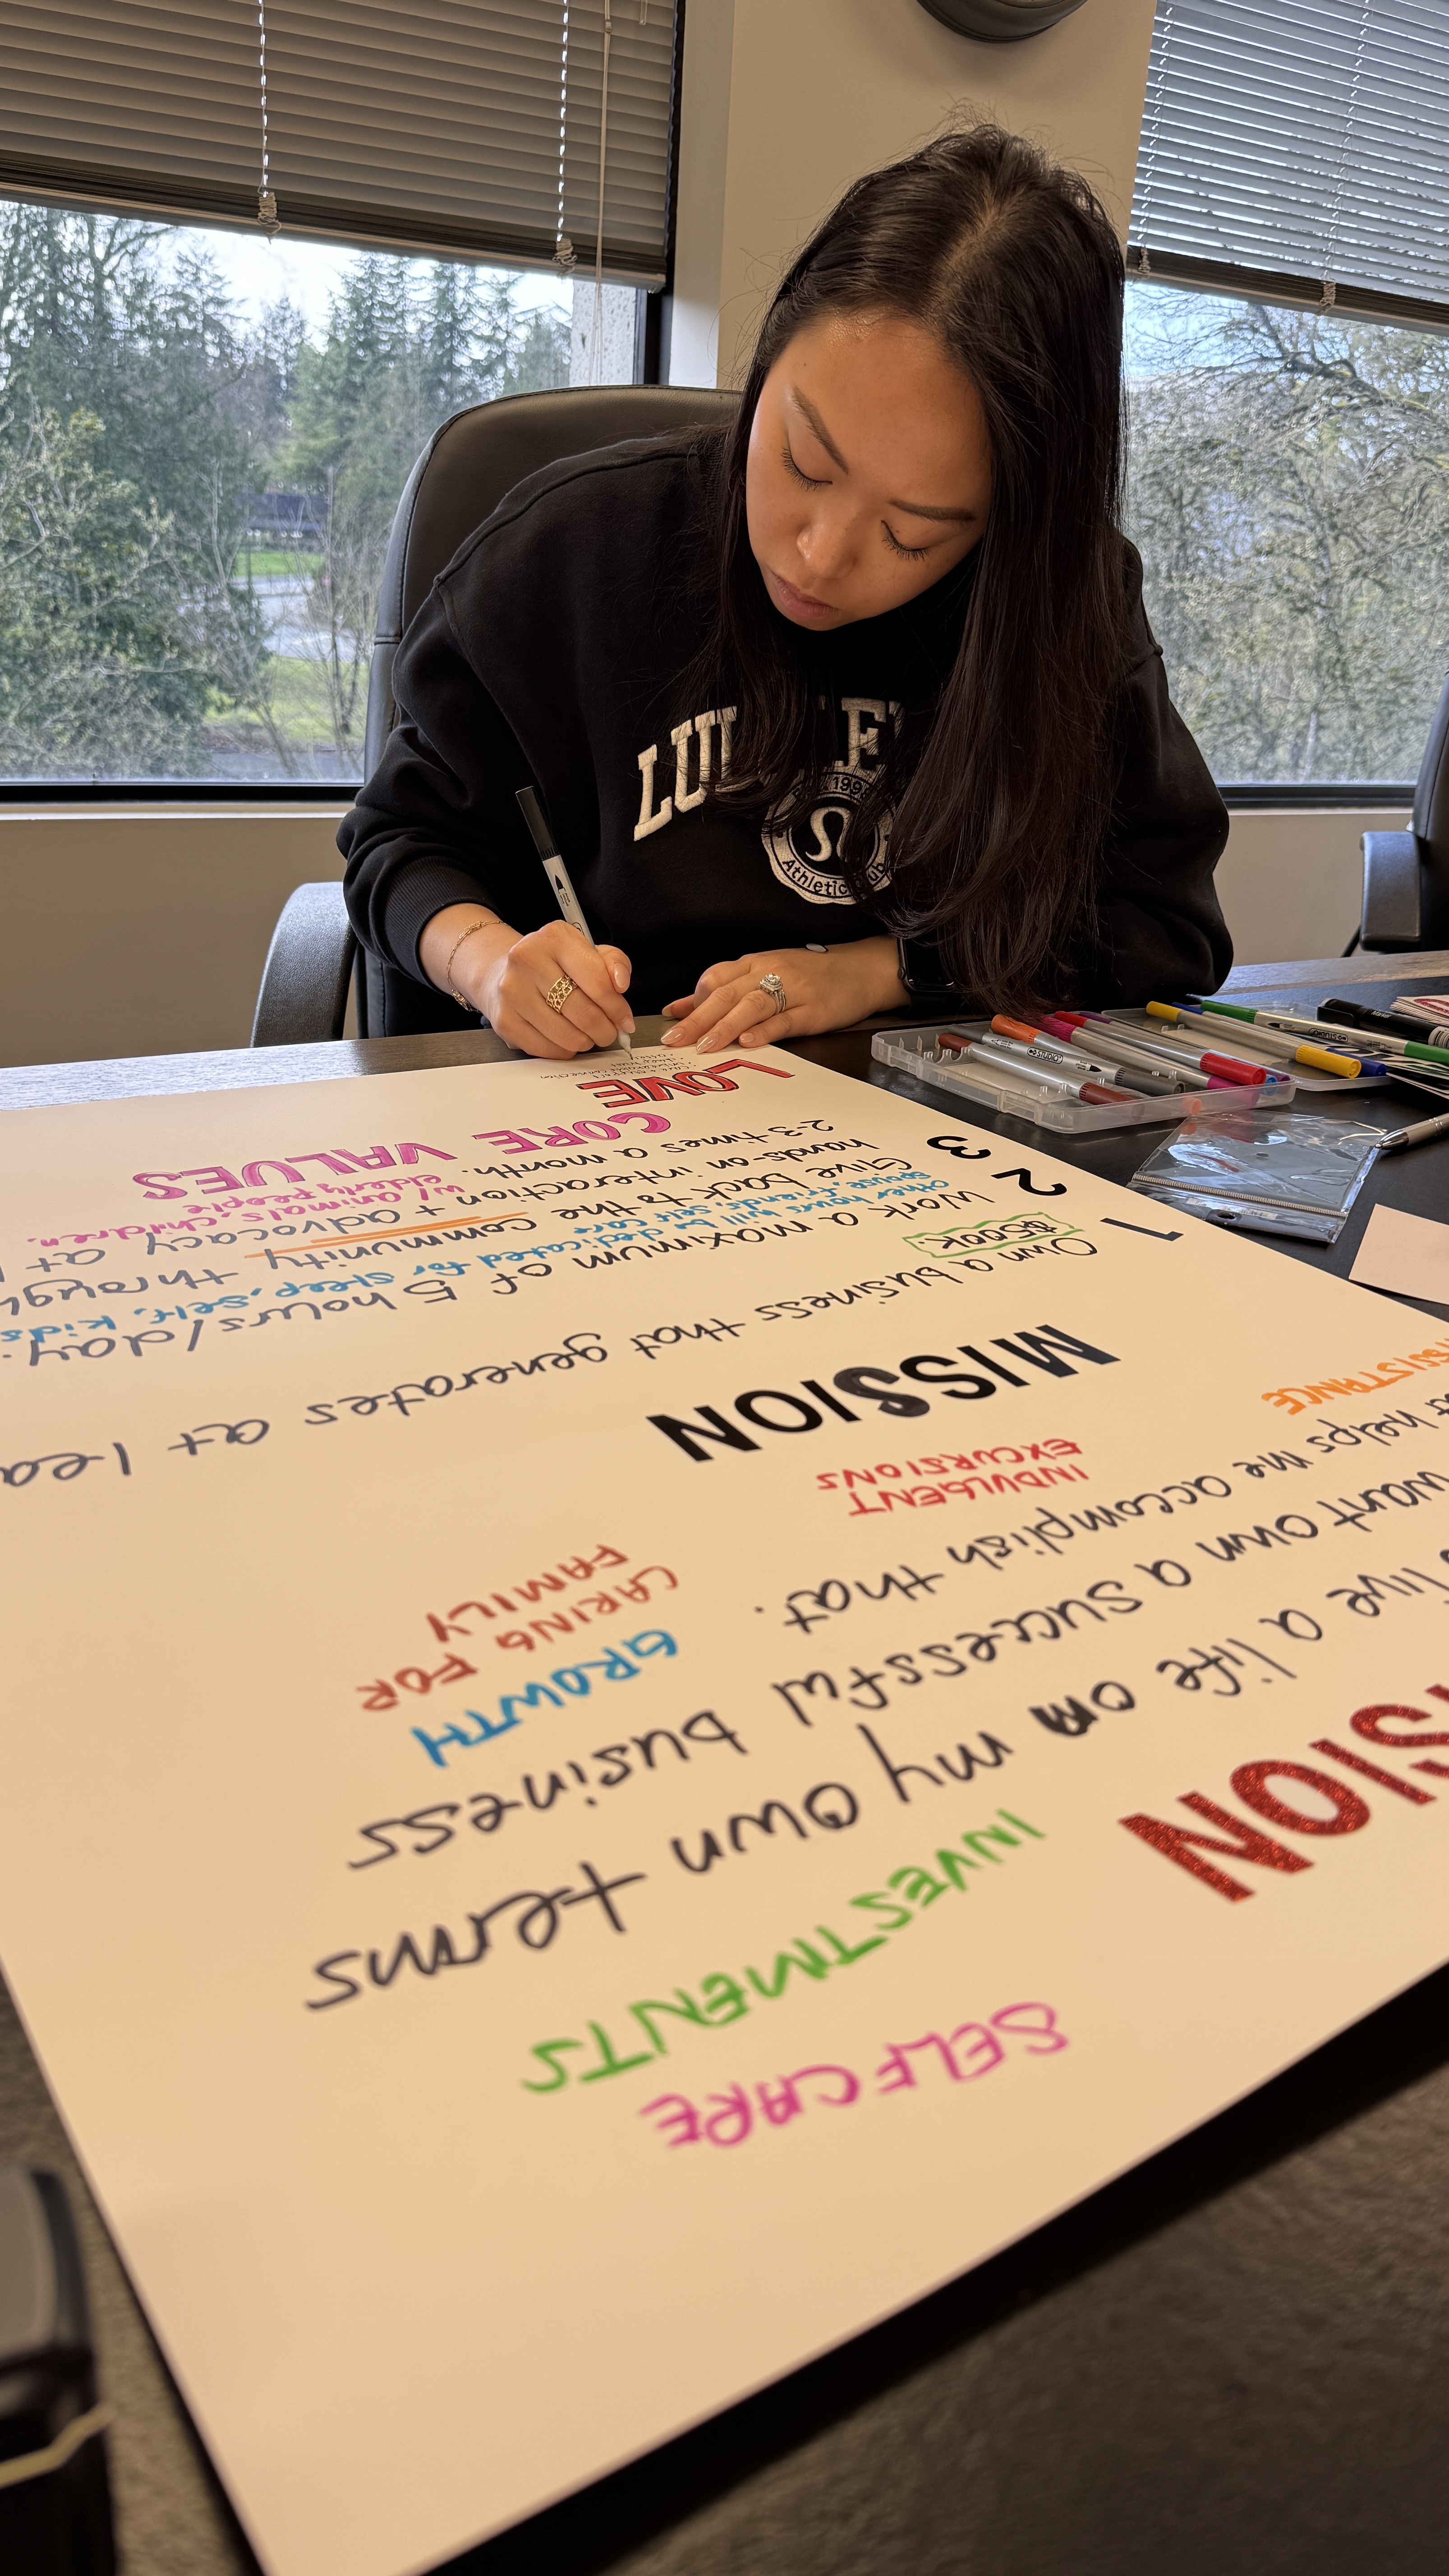 SELFCARE
INVESTMENTS
SION
live a life on my own terms
want own a successful business
helps me accomplish that.
GROWTH
CARING FOR
FAMILY
INDULGENT
EXCURSIONS
SISTANCE
MISSION
1 Own a business that generates at lea
$500K
2 Work a maximum of 5 hours/day.
other hours will be dedicated for sleep, self, kids
spouse, friends, self care
3 Give back to the community through
hands-on interaction + advocacy at
2-3 times a month.
w/ animals, children,
elderly people
CORE VALUES
LOVE
LUL
Athletic